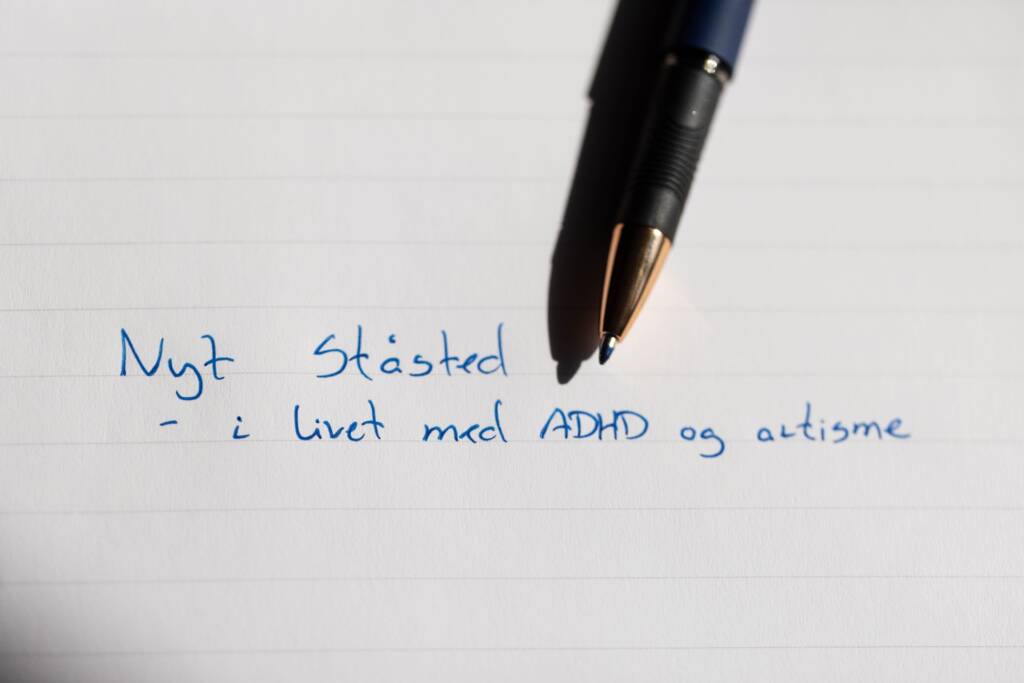 Nyt Ståsted
- i livet med ADHD og autisme